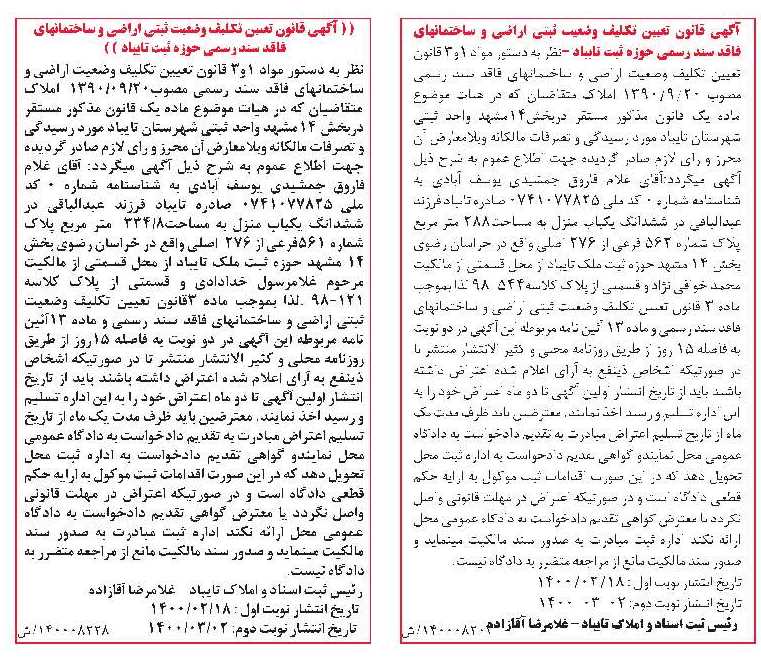 آگهی قانون تعیین تکلیف وضعیت ثبتی اراضی و ساختمانهای
فاقد سند رسمی حوزه ثبت تایباد –نظر به دستور مواد ۱و۳ قانون
تعیین تکلیف وضعیت اراضی و ساختمانهای فاقد سند رسمی
مصوب ۱۳۹۰/۹/۲۰ املاک متقاضیان که در هیات موضوع
ماده یک قانون مذکور مستقر دربخش۱۴مشهد واحد ثبتی
شهرستان تایباد مورد رسیدگی و تصرفات مالکانه وبلامعارض آن
محرز و رای لازم صادر گردیده جهت اطلاع عموم به شرح ذیل
آگهی میگردد:آقای غلام فاروق جمشیدی یوسف آبادی به
شناسنامه شماره ۰ کد ملی ۰۷۴۱۰۷۷۸۲۵ صادره تایباد فرزند
عبدالباقی در ششدانگ یکباب منزل به مساحت۲۸۸ متر مربع
پلاک شماره ۵۶۲ فرعی از ۲۷۶ اصلی واقع در خراسان رضوی
بخش ۱۴ مشهد حوزه ثبت ملک تایباد از محل قسمتی از مالکیت
محمد خوافی نژاد و قسمتی از پلاک کلاسه۵۴۴-۹۸ لذا بموجب
ماده ۳ قانون تعیین تکلیف وضعیت ثبتی اراضی و ساختمانهای
فاقد سند رسمی و ماده ۱۳ آئین نامه مربوطه این آگهی در دو نوبت
به فاصله ۱۵ روز از طریق روزنامه محلی و کثیر الانتشار منتشر تا
در صورتیکه اشخاص ذینفع به آرای اعلام شده اعتراض داشته
باشند باید از تاریخ انتشار اولین آگهی تا دو ماه اعتراض خود را به
این اداره تسلیم و رسید اخذ نمایند، معترضین باید ظرف مدت یک
ماه از تاریخ تسلیم اعتراض مبادرت به تقدیم دادخواست به دادگاه
عمومی محل نمایندو گواهی تقدیم دادخواست به اداره ثبت محل
تحویل دهد که در این صورت اقدامات ثبت موکول به ارایه حکم
قطعی دادگاه است و در صورتیکه اعتراض در مهلت قانونی واصل
نگردد یا معترض گواهی تقدیم دادخواست به دادگاه عمومی محل
ارائه نکند اداره ثبت مبادرت به صدور سند مالکیت مینماید و
صدور سند مالکیت مانع از مراجعه متضرر به دادگاه نیست.
تاریخ انتشار نوبت اول : ۱۴۰۰/۰۲/۱۸
تاریخ انتشار نوبت دوم: ۰۲-۰۳-۱۴۰۰
رئیس ثبت اسناد و املاک تایباد – غلامرضا آقازاده
(( آگهی قانون تعیین تکلیف وضعیت ثبتی اراضی و ساختمانهای
فاقد سند رسمی حوزه ثبت تایباد ))
نظر به دستور مواد ۱و۳ قانون تعیین تکلیف وضعیت اراضی و
ساختمانهای فاقد سند رسمی مصوب۱۳۹۰/۰۹/۲۰ املاک
متقاضیان که در هیات موضوع ماده یک قانون مذکور مستقر
دربخش ۱۴مشهد واحد ثبتی شهرستان تایباد مورد رسیدگی
و تصرفات مالکانه وبلامعارض آن محرز و رای لازم صادر گردیده
جهت اطلاع عموم به شرح ذیل آگهی میگردد: آقای غلام
فاروق جمشیدی یوسف آبادی به شناسنامه شماره ۰ کد
ملی ۰۷۴۱۰۷۷۸۲۵ صادره تایباد فرزند عبدالباقی در
ششدانگ یکباب منزل به مساحت۳۳۴/۸ متر مربع پلاک
شماره ۵۶۱فرعی از ۲۷۶ اصلی واقع در خراسان رضوی بخش
۱۴ مشهد حوزه ثبت ملک تایباد از محل قسمتی از مالکیت
مرحوم غلامرسول خدادادی و قسمتی از پلاک کلاسه
۹۸-۱۳۱ .لذا بموجب ماده ۳قانون تعیین تکلیف وضعیت
ثبتی اراضی و ساختمانهای فاقد سند رسمی و ماده ۱۳آئین
نامه مربوطه این آگهی در دو نوبت به فاصله ۱۵روز از طریق
روزنامه محلی و کثیر الانتشار منتشر تا در صورتیکه اشخاص
ذینفع به آرای اعلام شده اعتراض داشته باشند باید از تاریخ
انتشار اولین آگهی تا دو ماه اعتراض خود را به این اداره تسلیم
و رسید اخذ نمایند، معترضین باید ظرف مدت یک ماه از تاریخ
تسلیم اعتراض مبادرت به تقدیم دادخواست به دادگاه عمومی
محل نمایندو گواهی تقدیم دادخواست به اداره ثبت محل
تحویل دهد که در این صورت اقدامات ثبت موکول به ارایه حکم
قطعی دادگاه است و در صورتیکه اعتراض در مهلت قانونی
واصل نگردد یا معترض گواهی تقدیم دادخواست به دادگاه
عمومی محل ارائه نکند اداره ثبت مبادرت به صدور سند
مالکیت مینماید و صدور سند مالکیت مانع از مراجعه متضرر به
دادگاه نیست.
رئیس ثبت اسناد و املاک تایباد غلامرضا آقازاده
تاریخ انتشار نوبت اول : ۱۴۰۰/۰۲/۱۸
تاریخ انتشار نوبت دوم: ۱۴۰۰/۰۳/۰۲ ۱۴۰۰۰۸۲۲۸/ش